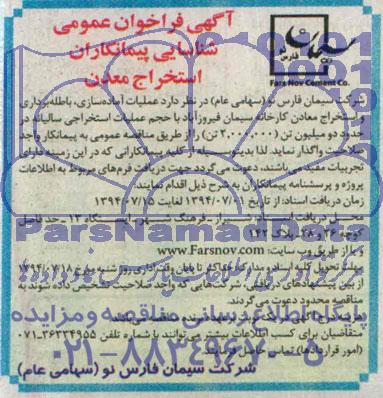 آگهی فراخوان عمومی
شناسایی پیمانکاران
استخراج معدن
سیمان
فارس نو
Fars Nov Cement Co.
شرکت سیمان فارس نو (سهامی عام) در نظر دارد عملیات آماده‌سازی، باطله‌برداری
و استخراج معادن کارخانه سیمان فیروزآباد با حجم عملیات استخراجی سالیانه در
حدود دو میلیون تن (۲,۰۰۰,۰۰۰ تن) را از طریق مناقصه عمومی به پیمانکار واجد
صلاحیت واگذار نماید. لذا بدینوسیله از کلیه پیمانکارانی که در این زمینه دارای
تجربیات مفید می‌باشند، دعوت می‌گردد جهت دریافت فرم‌های مربوط به اطلاعات
پروژه و پرسشنامه پیمانکاران به شرح ذیل اقدام نمایند.
زمان دریافت اسناد: از تاریخ ۱۳۹۴/۰۷/۰۱ لغایت ۱۳۹۴/۰۷/۱۵
محل دریافت اسناد: شیراز - فرهنگ شهر - ایستگاه ۱۳ - حد فاصل
کوچه ۲۶ و ۲۸ - پلاک ۲۴۲
و یا از طریق وب سایت: www.Farsnov.com
مهلت تحویل کلیه اسناد و مدارک حداکثر تا پایان وقت اداری روز شنبه مورخ
از بین پیشنهادهای دریافتی، شرکت‌هایی که واجد صلاحیت تشخیص داده شوند به
مناقصه محدود دعوت می‌گردند.
متقاضیان برای کسب اطلاعات بیشتر می‌توانند با شماره تلفن ۳۶۳۳۴۹۵۵-۰۷۱
(امور قراردادها) تماس حاصل فرمایند.
شرکت سیمان فارس نو (سهامی عام)
ParsNamadData
پایگاه اطلاع رسانی مناقصه و مزایده
۰۲۱-۸۸۳۴۹۶۷۰-۵